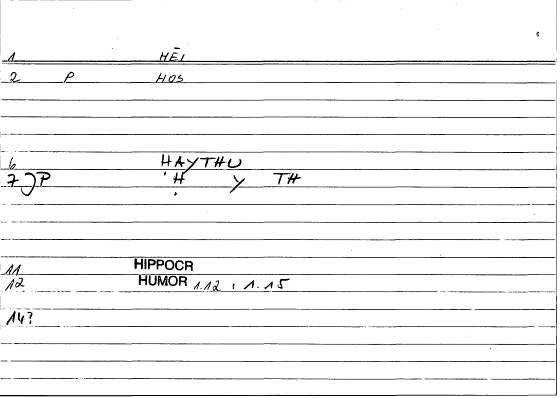 1 HĒI
2 P HOS
6 HAYTHU
7 JP H Y TH
11 HIPPOCR
12 HUMOR 1.12 , 1.15
14?